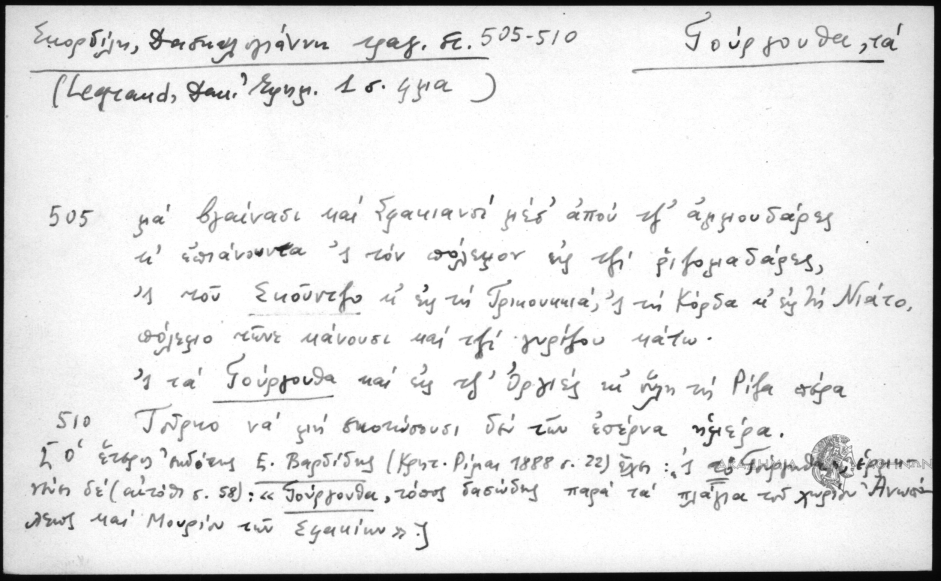 Σκορδίλη, Δασκαλογιάννη τραγ. στ. 505-510 Γούργουθα, τά
(Legrand, Δασκ. 1 σ.
505 μά βγαίνασι καί Σφακιανοί μέσ' ἀπού τσ' ἀμμουδάρες
κ' ἐπιάνουντα 'ς τόν πόλεμον εἰς τσί ῥιζομαδάρες,
'ς τοῦ Σκούντζο κ' εἰς τή Τρικουκκιά, 'ς τή Κόρδα κ' εἰς τή Νιάτο,
πόλεμο τῶνε κάνουσι καί τσί γυρίζου κάτω.
'ς τά Γούργουθα καί εἰς τσ' Ὀργιές κι' ὅλη τή Ρίζα πέρα
510 Τοῦρκο νά μή σκοτώσουσι δέν τῶν ἐπέρνα ἡμέρα.
[Ὁ ἕτερος ἐκδότης Ε. Βαρδίδης (Κρητ. Ρίμαι 1888 σ. 22) ἔχει: 'ς τά Γούργουθα, ἑρμη-
νεύει δέ (αὐτόθι σ. 58): «Γούργουθα, τόπος δασώδης παρά τά πλάγια τοῦ χωρίου Ἀνωπό-
λεως καί Μουρίου τῶν Σφακίων».]